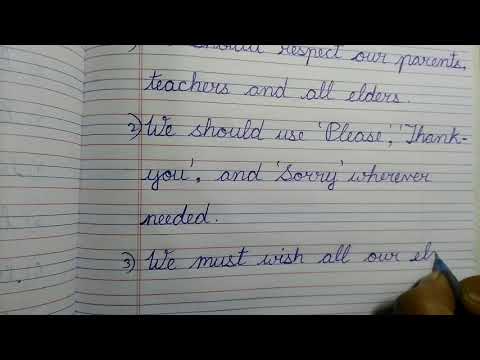 should respect our parents,
teachers and all elders.
2) We should use 'Please', 'Thank-
you', and 'Sorry' wherever
needed.
3) We must wish all our el